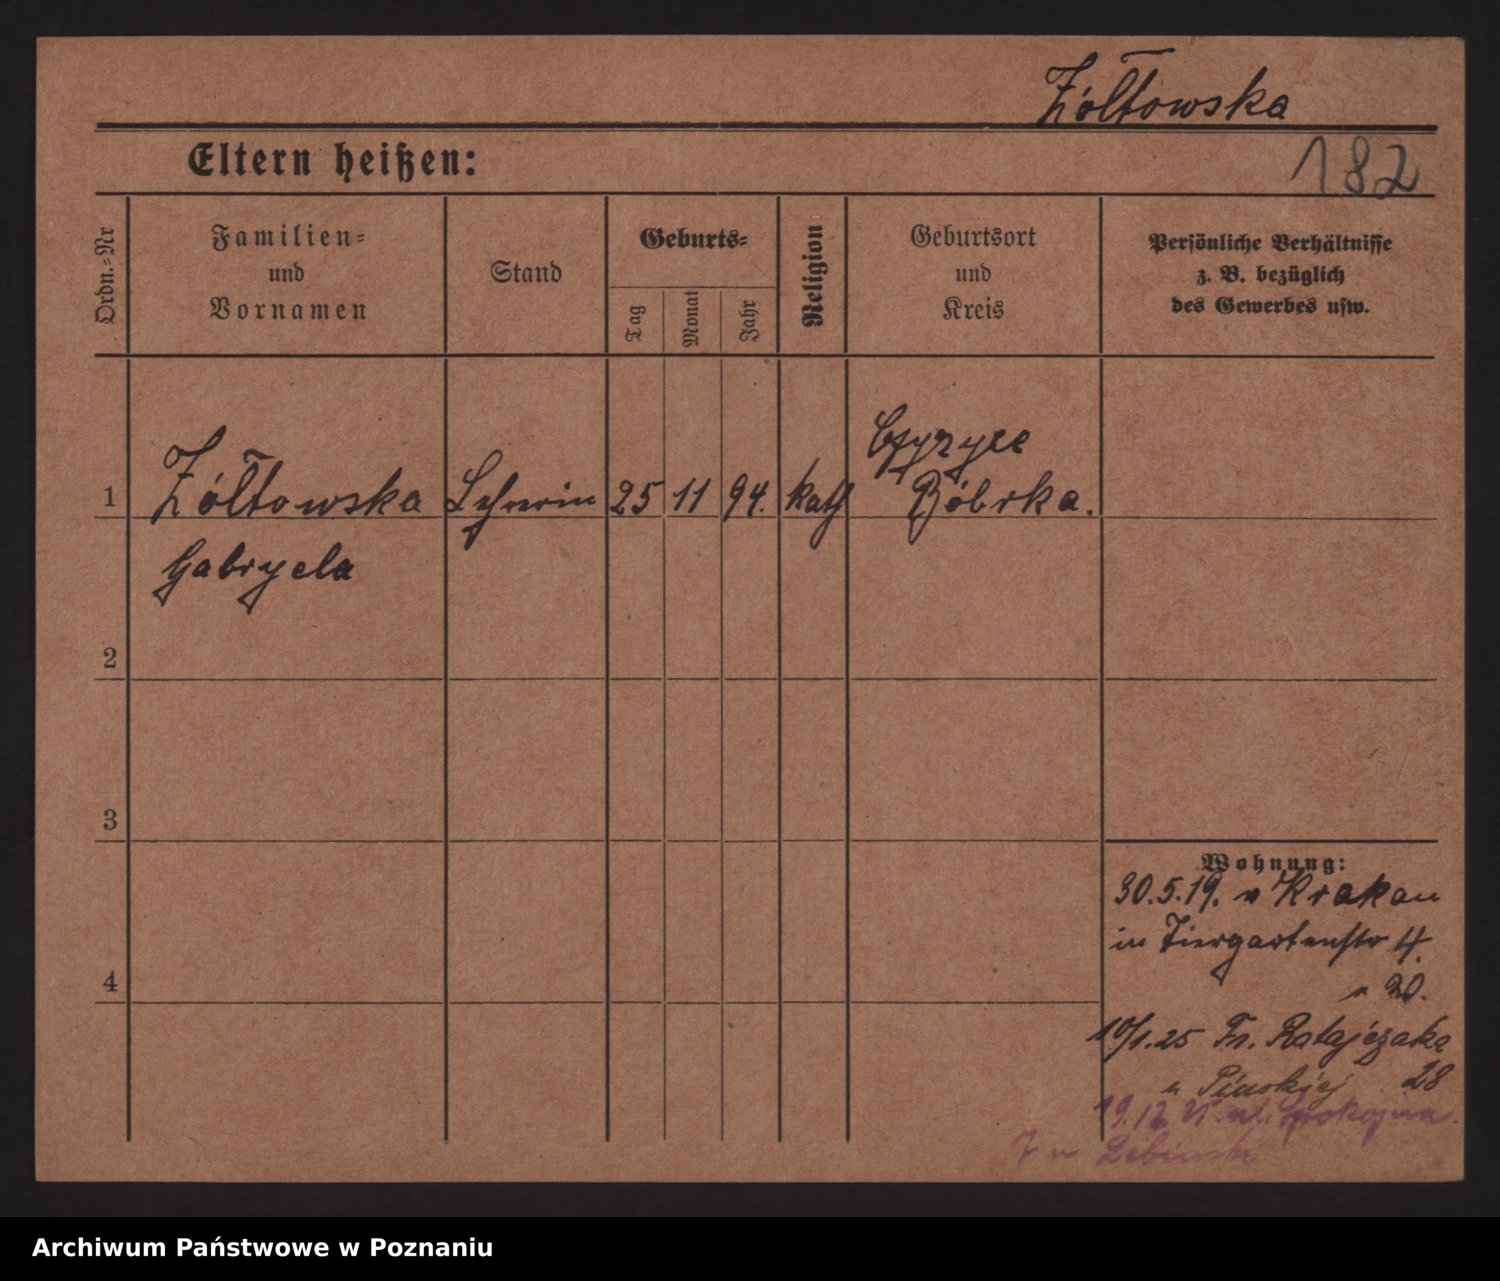 Żółtowska
Eltern heißen:
182
Ordn.-Nr
Familien-
und
Vornamen
Stand
Geburts-
Tag
Monat
Jahr
Religion
Geburtsort
und
Kreis
Persönliche Verhältnisse
z. B. bezüglich
des Gewerbes usw.
1 Żółtowska 25 11 94. kath
Bóbrka.
Gabryela
2
3
4
Wohnung:
30.5.19. v Krakau
in Tiergartenstr 4.
10/1.25 Fr. Ratajczaka
28
19.12. ul. Spokojna
Żółtowska